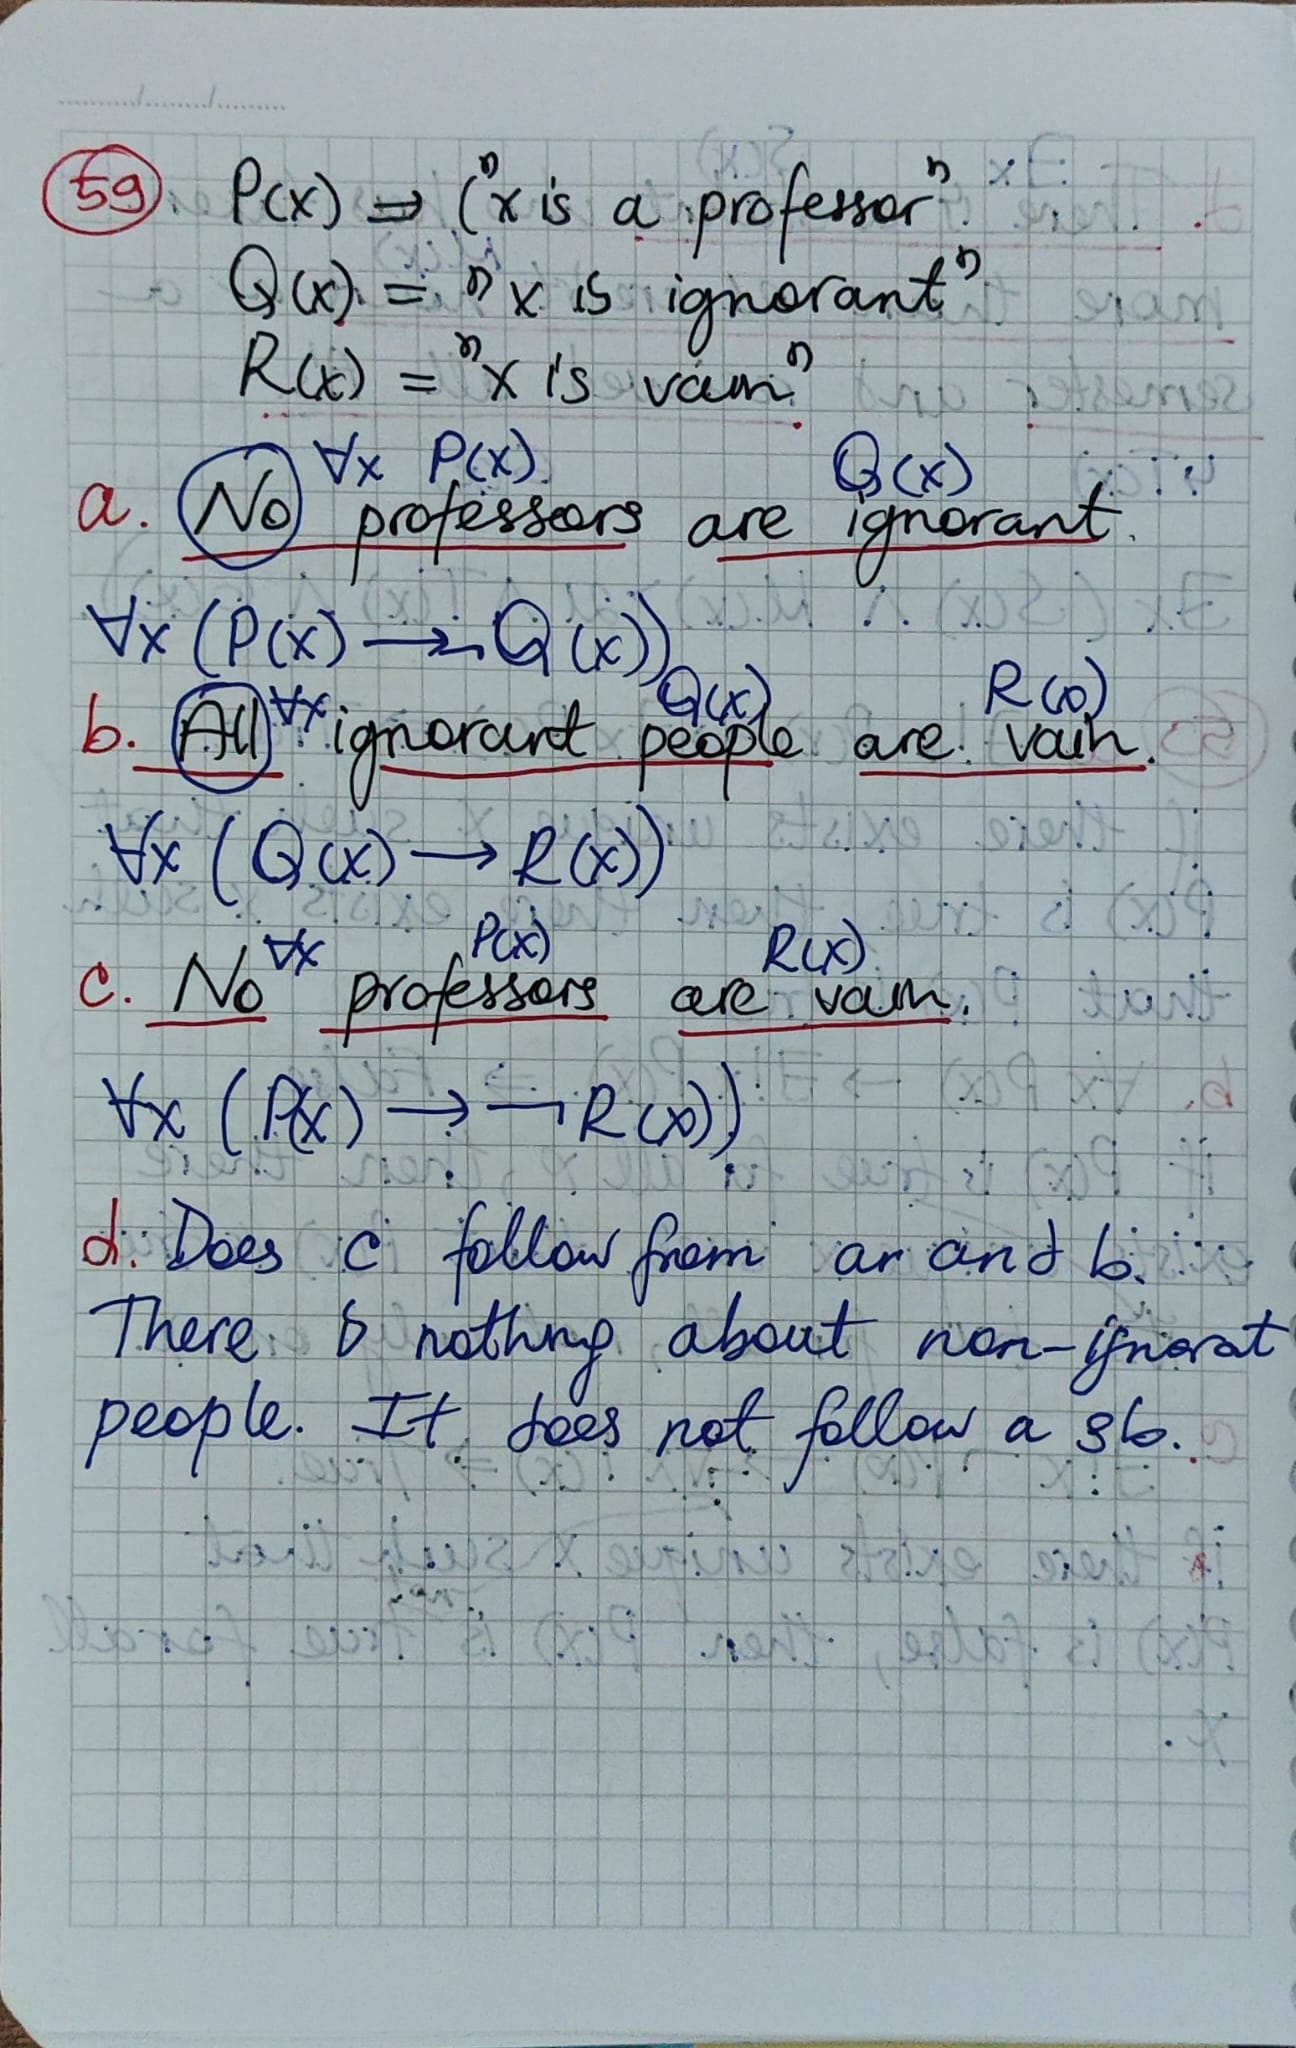 59 P(x) ⇒ ("x is a professor"
Q(x) = "x is ignorant"
R(x) = "x is vain"
∀x P(x) Q(x)
a. No professors are ignorant.
∀x (P(x) → ¬Q(x))
∀x Q(x) R(x)
b. All ignorant people are vain.
∀x (Q(x) → R(x))
∀x P(x) R(x)
c. No professors are vain.
∀x (P(x) → ¬R(x))
d. Does c follow from a and b.
There is nothing about non-ignorat
people. It does not follow a b.